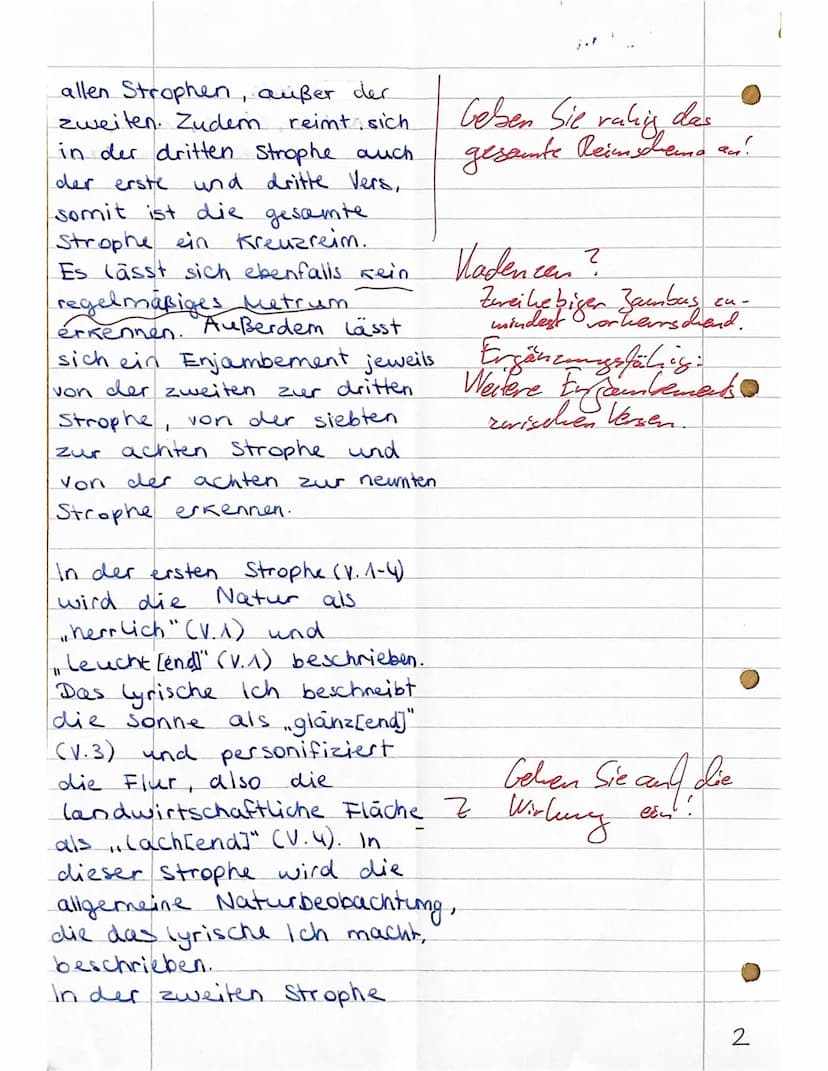 allen Strophen, außer der
zweiten. Zudem reimt sich
in der dritten Strophe auch
der erste und dritte Vers,
somit ist die gesamte
Strophe ein Kreuzreim.
Es lässt sich ebenfalls kein
regelmäßiges Metrum
erkennen. Außerdem lässt
sich ein Enjambement jeweils
von der zweiten zur dritten
Strophe, von der siebten
zur achten Strophe und
von der achten zur neunten
Strophe erkennen.
In der ersten Strophe (V. 1-4)
wird die Natur als
„herrlich" (V.1) und
„leucht[end]" (V.1) beschrieben.
Das lyrische Ich beschreibt
die Sonne als „glänz[end]"
(V.3) und personifiziert
die Flur, also die
landwirtschaftliche Fläche
als „lach[end]" (V.4). In
dieser Strophe wird die
allgemeine Naturbeobachtung,
die das lyrische Ich macht,
beschrieben.
In der zweiten Strophe
Geben Sie ruhig das
gesamte Reimschema an!
Kadenzen?
Zweihebiger Jambus zu-
mindest vorherrschend.
Ergänzungsfähig:
Weitere Enjambements
zwischen Versen.
Z
Gehen Sie auf die
Wirkung ein!
2